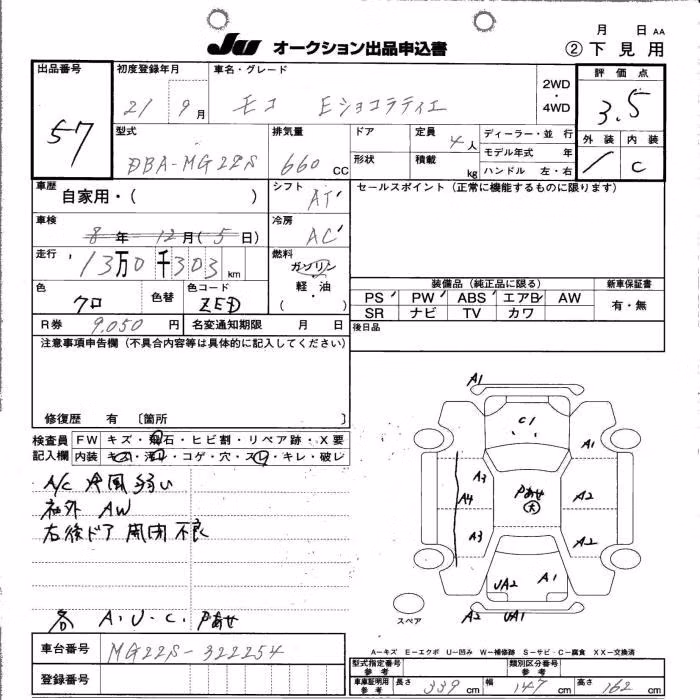 月 日 AA
JU オークション出品申込書 ②下見用
出品番号 57
初度登録年月 21 9月
車名・グレード モコ Eショコラティエ
2WD・4WD
評価点 3.5
外装 / 内装 C
型式 DBA-MG22S
排気量 660 CC
ドア
形状
定員 4人
積載 kg
ディーラー・並行
モデル年式 年
ハンドル 左・右
車歴 自家用・( )
シフト AT
セールスポイント(正常に機能するものに限ります)
車検 8年12月(5日)
冷房 AC
走行 13万0千303km
燃料 ガソリン
軽・油
( )
色 クロ 色替 色コード ZED
装備品(純正品に限る) 新車保証書
PS PW ABS エアB AW 有・無
SR ナビ TV カワ
R券 9,050円 名変通知期限 月 日
後日品
注意事項申告欄(不具合内容等は具体的に記入してください)
修復歴 有 〔箇所 〕
検査員記入欄
FW キズ・飛石・ヒビ割・リペア跡・X要
内装 キズ・汚れ・コゲ・穴・スレ・キレ・破レ
A/C 冷風弱い
社外 AW
右後ドア 開閉不良
各 A.U.C. Pあせ
A1
C1
A1
A3
A4
Pあせ
大
A2
A3
A2
UA2
A1
A2
UA1
スペア
A-キズ E-エクボ U-凹み W-補修跡 S-サビ・C-腐食 XX-交換済
車台番号 MG22S-322254
登録番号
型式指定番号 参考
類別区分番号 参考
車庫証明用 参考 長さ 339cm 幅 147cm 高さ 162cm